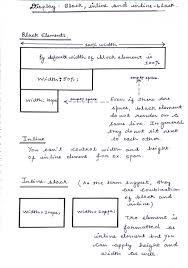 Display: Block, inline and inline-block.
Block Elements.
100% width
By default width of block element is
100%
Width: 50%;
empty space.
Width:
empty space
Even if there are
space, block element
do not render on a
same line. In general
they do not sit next
to each other.
Inline
You can't control width and height
of inline element for ex. span.
Inline-block
(As the term suggest, they
are combination
of block and
inline)
Width:
Width:
The element is
formatted as
inline element but you
can apply height and
width to it.